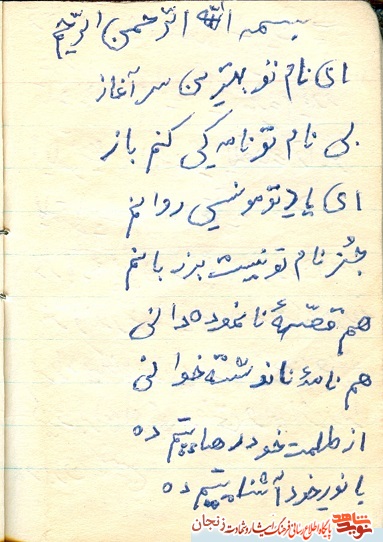 بسمه الله الرحمن الرحیم
ای نام تو بهترین سر آغاز
بی نام تو نامه کی کنم باز
ای یاد تو مونس روانم
جُز نام تو نیست بر زبانم
هم قصّهٔ نا نموده دانی
هم نامهٔ نانوشته خوانی
از ظلمت خود رهاییم ده
با نور خود آشناییم ده
نوید شاهد
پایگاه اطلاع رسانی فرهنگ ایثار و شهادت زنجان